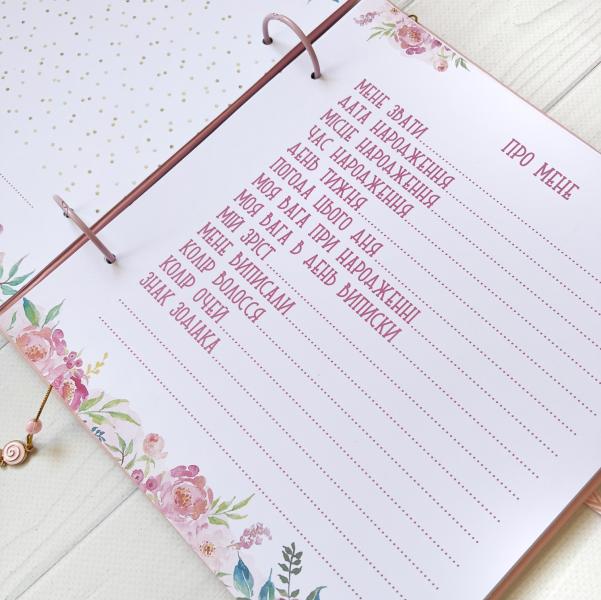 ПРО МЕНЕ
МЕНЕ ЗВАТИ
ДАТА НАРОДЖЕННЯ
МІСЦЕ НАРОДЖЕННЯ
ЧАС НАРОДЖЕННЯ
ДЕНЬ ТИЖНЯ
ПОГОДА ЦЬОГО ДНЯ
МОЯ ВАГА ПРИ НАРОДЖЕННІ
МОЯ ВАГА В ДЕНЬ ВИПИСКИ
МІЙ ЗРІСТ
МЕНЕ ВИПИСАЛИ
КОЛІР ВОЛОССЯ
КОЛІР ОЧЕЙ
ЗНАК ЗОДІАКА